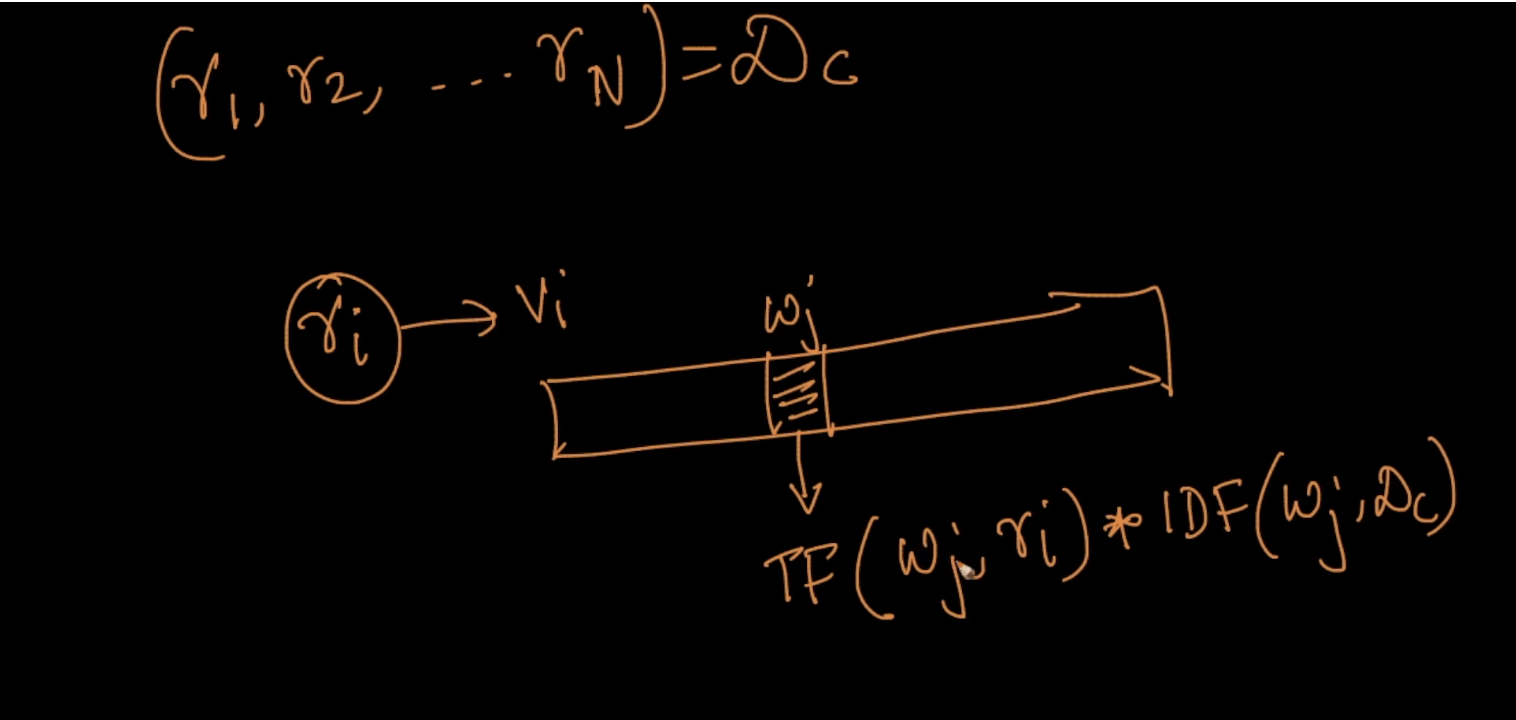 (r₁, r₂, ... r_N) = D_C
rᵢ → vᵢ
wⱼ
TF(wⱼ, rᵢ) * IDF(wⱼ, D_C)